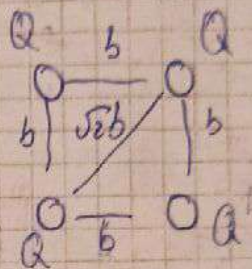 Q b Q
b √2b b
Q b Q